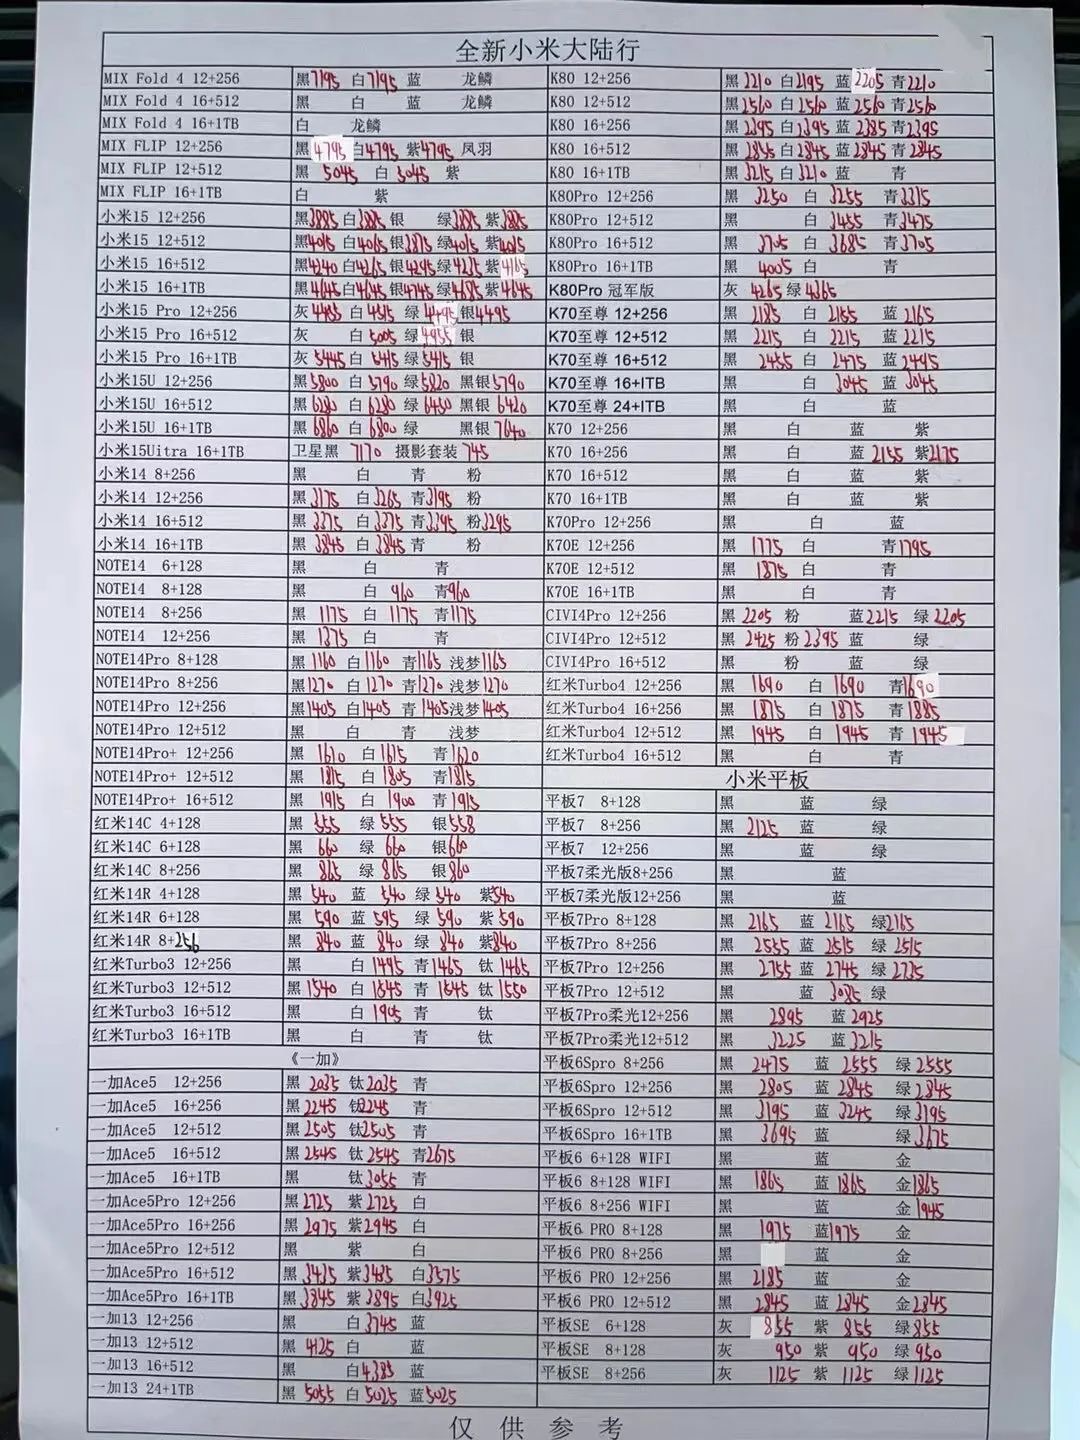 全新小米大陆行
MIX Fold 4 12+256 黑7195 白7195 蓝 龙鳞 K80 12+256 黑2210 白2195 蓝2205 青2210
MIX Fold 4 16+512 黑 白 蓝 龙鳞 K80 12+512 黑2560 白2560 蓝2560 青2560
MIX Fold 4 16+1TB 白 龙鳞 K80 16+256 黑2395 白2395 蓝2385 青2395
MIX FLIP 12+256 黑4795 白4795 紫4795 凤羽 K80 16+512 黑2835 白2845 蓝2845 青2845
MIX FLIP 12+512 黑5045 白5045 紫 K80 16+1TB 黑3215 白3210 蓝 青
MIX FLIP 16+1TB 白 紫 K80Pro 12+256 黑3250 白3255 青3315
小米15 12+256 黑3885 白3885 银 绿3885 紫3885 K80Pro 12+512 黑 白3455 青3475
小米15 12+512 黑4015 白4065 银3875 绿4015 紫4015 K80Pro 16+512 黑3705 白3685 青3705
小米15 16+512 黑4240 白4265 银4295 绿4235 紫4165 K80Pro 16+1TB 黑4005 白 青
小米15 16+1TB 黑4645 白4645 银4745 绿4685 紫4645 K80Pro 冠军版 灰4265 绿4365
小米15 Pro 12+256 灰4485 白4515 绿4495 银4495 K70至尊 12+256 黑2185 白2155 蓝2165
小米15 Pro 16+512 灰 白5005 绿4955 银 K70至尊 12+512 黑2215 白2215 蓝2215
小米15 Pro 16+1TB 灰5445 白5415 绿5415 银 K70至尊 16+512 黑2455 白2475 蓝2495
小米15U 12+256 黑5800 白5790 绿5820 黑银5790 K70至尊 16+ITB 黑 白3045 蓝3045
小米15U 16+512 黑6280 白6280 绿6450 黑银6420 K70至尊 24+ITB 黑 白 蓝
小米15U 16+1TB 黑6860 白6800 绿 黑银7640 K70 12+256 黑 白 蓝 紫
小米15Uitra 16+1TB 卫星黑 7170 摄影套装 745 K70 16+256 黑 白 蓝2155 紫2175
小米14 8+256 黑 白 青 粉 K70 16+512 黑 白 蓝 紫
小米14 12+256 黑3175 白3265 青3195 粉 K70 16+1TB 黑 白 蓝 紫
小米14 16+512 黑3375 白3375 青3395 粉3295 K70Pro 12+256 黑 白 蓝
小米14 16+1TB 黑3845 白3845 青 粉 K70E 12+256 黑1775 白 青1795
NOTE14 6+128 黑 白 青 K70E 12+512 黑1875 白 青
NOTE14 8+128 黑 白960 青960 K70E 16+1TB 黑 白 青
NOTE14 8+256 黑1175 白1175 青1175 CIVI4Pro 12+256 黑2205 粉 蓝2215 绿2205
NOTE14 12+256 黑1375 白 青 CIVI4Pro 12+512 黑2425 粉2395 蓝 绿
NOTE14Pro 8+128 黑1160 白1160 青1165 浅梦1165 CIVI4Pro 16+512 黑 粉 蓝 绿
NOTE14Pro 8+256 黑1270 白1270 青1270 浅梦1270 红米Turbo4 12+256 黑1690 白1690 青1690
NOTE14Pro 12+256 黑1405 白1405 青1405 浅梦1405 红米Turbo4 16+256 黑1875 白1875 青1885
NOTE14Pro 12+512 黑 白 青 浅梦 红米Turbo4 12+512 黑1945 白1945 青1945
NOTE14Pro+ 12+256 黑1610 白1615 青1620 红米Turbo4 16+512 黑 白 青
NOTE14Pro+ 12+512 黑1815 白1805 青1815 小米平板
NOTE14Pro+ 16+512 黑1915 白1900 青1915 平板7 8+128 黑 蓝 绿
红米14C 4+128 黑555 绿555 银558 平板7 8+256 黑2125 蓝 绿
红米14C 6+128 黑660 绿660 银660 平板7 12+256 黑 蓝 绿
红米14C 8+256 黑865 绿865 银860 平板7柔光版8+256 黑 蓝
红米14R 4+128 黑540 蓝540 绿540 紫540 平板7柔光版12+256 黑 蓝
红米14R 6+128 黑590 蓝595 绿590 紫590 平板7Pro 8+128 黑2165 蓝2165 绿2165
红米14R 8+256 黑840 蓝840 绿840 紫840 平板7Pro 8+256 黑2555 蓝2515 绿2515
红米Turbo3 12+256 黑 白1495 青1465 钛1465 平板7Pro 12+256 黑2755 蓝2745 绿2725
红米Turbo3 12+512 黑1540 白1645 青1645 钛1550 平板7Pro 12+512 黑 蓝3085 绿
红米Turbo3 16+512 黑 白1905 青 钛 平板7Pro柔光12+256 黑2895 蓝2925
红米Turbo3 16+1TB 黑 白 青 钛 平板7Pro柔光12+512 黑3225 蓝3215
《一加》 平板6Spro 8+256 黑2475 蓝2555 绿2555
一加Ace5 12+256 黑2035 钛2035 青 平板6Spro 12+256 黑2805 蓝2845 绿2845
一加Ace5 16+256 黑2245 钛2245 青 平板6Spro 12+512 黑3195 蓝3245 绿3195
一加Ace5 12+512 黑2505 钛2505 青 平板6Spro 16+1TB 黑3695 蓝 绿3675
一加Ace5 16+512 黑2545 钛2545 青2675 平板6 6+128 WIFI 黑 蓝 金
一加Ace5 16+1TB 黑 钛3055 青 平板6 8+128 WIFI 黑1865 蓝1865 金1865
一加Ace5Pro 12+256 黑2725 紫2725 白 平板6 8+256 WIFI 黑 蓝 金1945
一加Ace5Pro 16+256 黑2975 紫2945 白 平板6 PRO 8+128 黑1975 蓝1975 金
一加Ace5Pro 12+512 黑 紫 白 平板6 PRO 8+256 黑 蓝 金
一加Ace5Pro 16+512 黑3435 紫3435 白3575 平板6 PRO 12+256 黑2185 蓝 金
一加Ace5Pro 16+1TB 黑3845 紫3895 白3925 平板6 PRO 12+512 黑2845 蓝2845 金2845
一加13 12+256 黑 白3745 蓝 平板SE 6+128 灰855 紫855 绿855
一加13 12+512 黑4125 白 蓝 平板SE 8+128 灰950 紫950 绿950
一加13 16+512 黑 白4385 蓝 平板SE 8+256 灰1125 紫1125 绿1125
一加13 24+1TB 黑5055 白5025 蓝5025
仅供参考